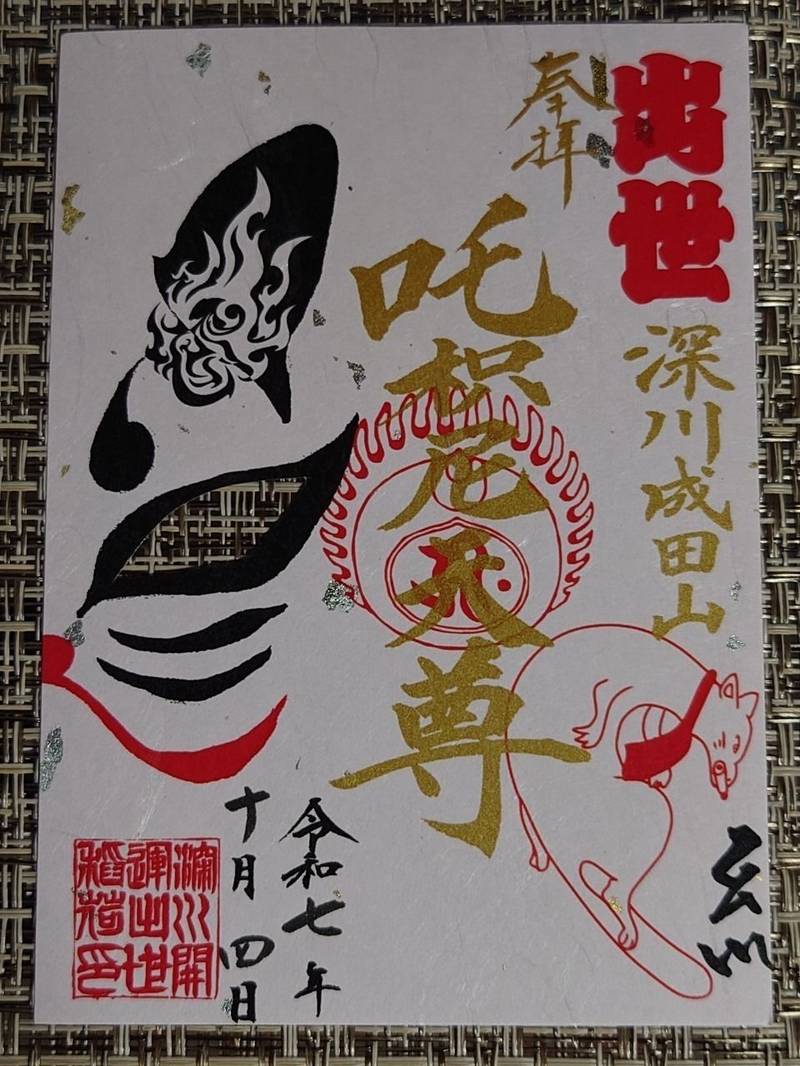 出世
奉拝
深川成田山
吒枳尼天尊
令和七年
十月四日
深川開
運出世
稲荷印